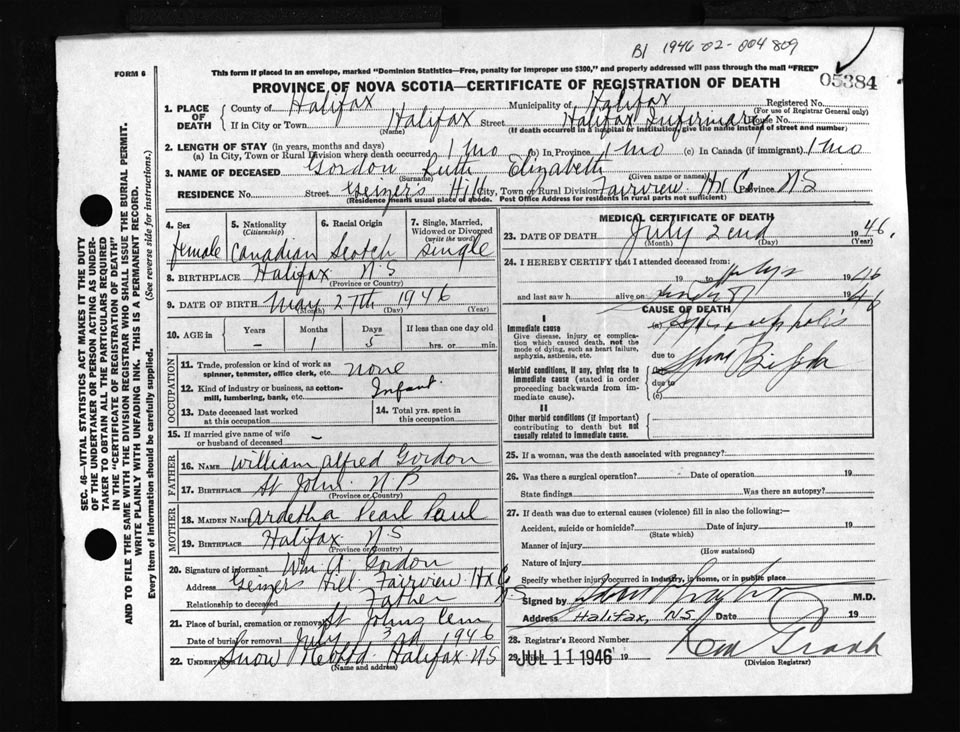 B1 1946-02-004809
FORM 6
This form if placed in an envelope, marked "Dominion Statistics—Free, penalty for improper use $300," and properly addressed will pass through the mail "FREE"
05384
PROVINCE OF NOVA SCOTIA—CERTIFICATE OF REGISTRATION OF DEATH
1. PLACE OF DEATH
County of Halifax Municipality of Halifax Registered No.
(For use of Registrar General only)
If in City or Town Halifax Street Halifax Infirmary House No.
(Name) (If death occurred in a hospital or institution, give the name instead of street and number)
2. LENGTH OF STAY (in years, months and days)
(a) In City, Town or Rural Division where death occurred 1 mo (b) In Province 1 mo (c) In Canada (if immigrant) 1 mo
3. NAME OF DECEASED Gordon Ruth Elizabeth
(Surname) (Given name or names)
RESIDENCE No. Street Geizer's Hill City, Town or Rural Division Fairview Hx Co Province NS
(Residence means usual place of abode. Post Office Address for residents in rural parts not sufficient)
4. Sex
female
5. Nationality
(Citizenship)
Canadian
6. Racial Origin
Scotch
7. Single, Married, Widowed or Divorced
(write the word)
single
8. BIRTHPLACE Halifax N.S
(Province or Country)
9. DATE OF BIRTH May 27th 1946
(Month) (Day) (Year)
10. AGE in
Years Months Days If less than one day old
– 1 5 hrs. or min.
OCCUPATION
11. Trade, profession or kind of work as spinner, teamster, office clerk, etc. none
12. Kind of industry or business, as cotton-mill, lumbering, bank, etc. Infant
13. Date deceased last worked at this occupation
14. Total yrs. spent in this occupation
15. If married give name of wife or husband of deceased –
FATHER
16. NAME William Alfred Gordon
17. BIRTHPLACE St John N.B
(Province or Country)
MOTHER
18. MAIDEN NAME Ardetha Pearl Paul
19. BIRTHPLACE Halifax NS
(Province or Country)
20. Signature of informant Wm A Gordon
Address Geizers Hill Fairview Hx Co NS
Relationship to deceased Father
21. Place of burial, cremation or removal St Johns Cem
Date of burial or removal July 3rd 1946
22. UNDERTAKER Snow Halifax NS
(Name and address)
MEDICAL CERTIFICATE OF DEATH
23. DATE OF DEATH July 2end 1946.
(Month) (Day) (Year)
24. I HEREBY CERTIFY that I attended deceased from:
19 to July 2 1946
and last saw h alive on 1946
CAUSE OF DEATH
I
Immediate cause
Give disease, injury or complication which caused death, not the mode of dying, such as heart failure, asphyxia, asthenia, etc.
(a)
due to
Morbid conditions, if any, giving rise to immediate cause (stated in order proceeding backwards from immediate cause).
(b) Spina Bifida
due to
(c)
II
Other morbid conditions (if important) contributing to death but not causally related to immediate cause.
25. If a woman, was the death associated with pregnancy?
26. Was there a surgical operation? Date of operation 19
State findings Was there an autopsy?
27. If death was due to external causes (violence) fill in also the following:—
Accident, suicide or homicide? Date of injury 19
(State which)
Manner of injury
(How sustained)
Nature of injury
Specify whether injury occurred in industry, in home, or in public place
Signed by M.D.
Address Halifax, N.S Date 19
28. Registrar's Record Number
29. JUL 11 1946 19
(Division Registrar)
SEC. 46—VITAL STATISTICS ACT MAKES IT THE DUTY OF THE UNDERTAKER OR PERSON ACTING AS UNDERTAKER TO OBTAIN ALL THE PARTICULARS REQUIRED IN THE "CERTIFICATE OF REGISTRATION OF DEATH" AND TO FILE THE SAME WITH THE DIVISION REGISTRAR WHO SHALL ISSUE THE BURIAL PERMIT.
WRITE PLAINLY WITH UNFADING INK. THIS IS A PERMANENT RECORD.
Every item of information should be carefully supplied. (See reverse side for instructions.)